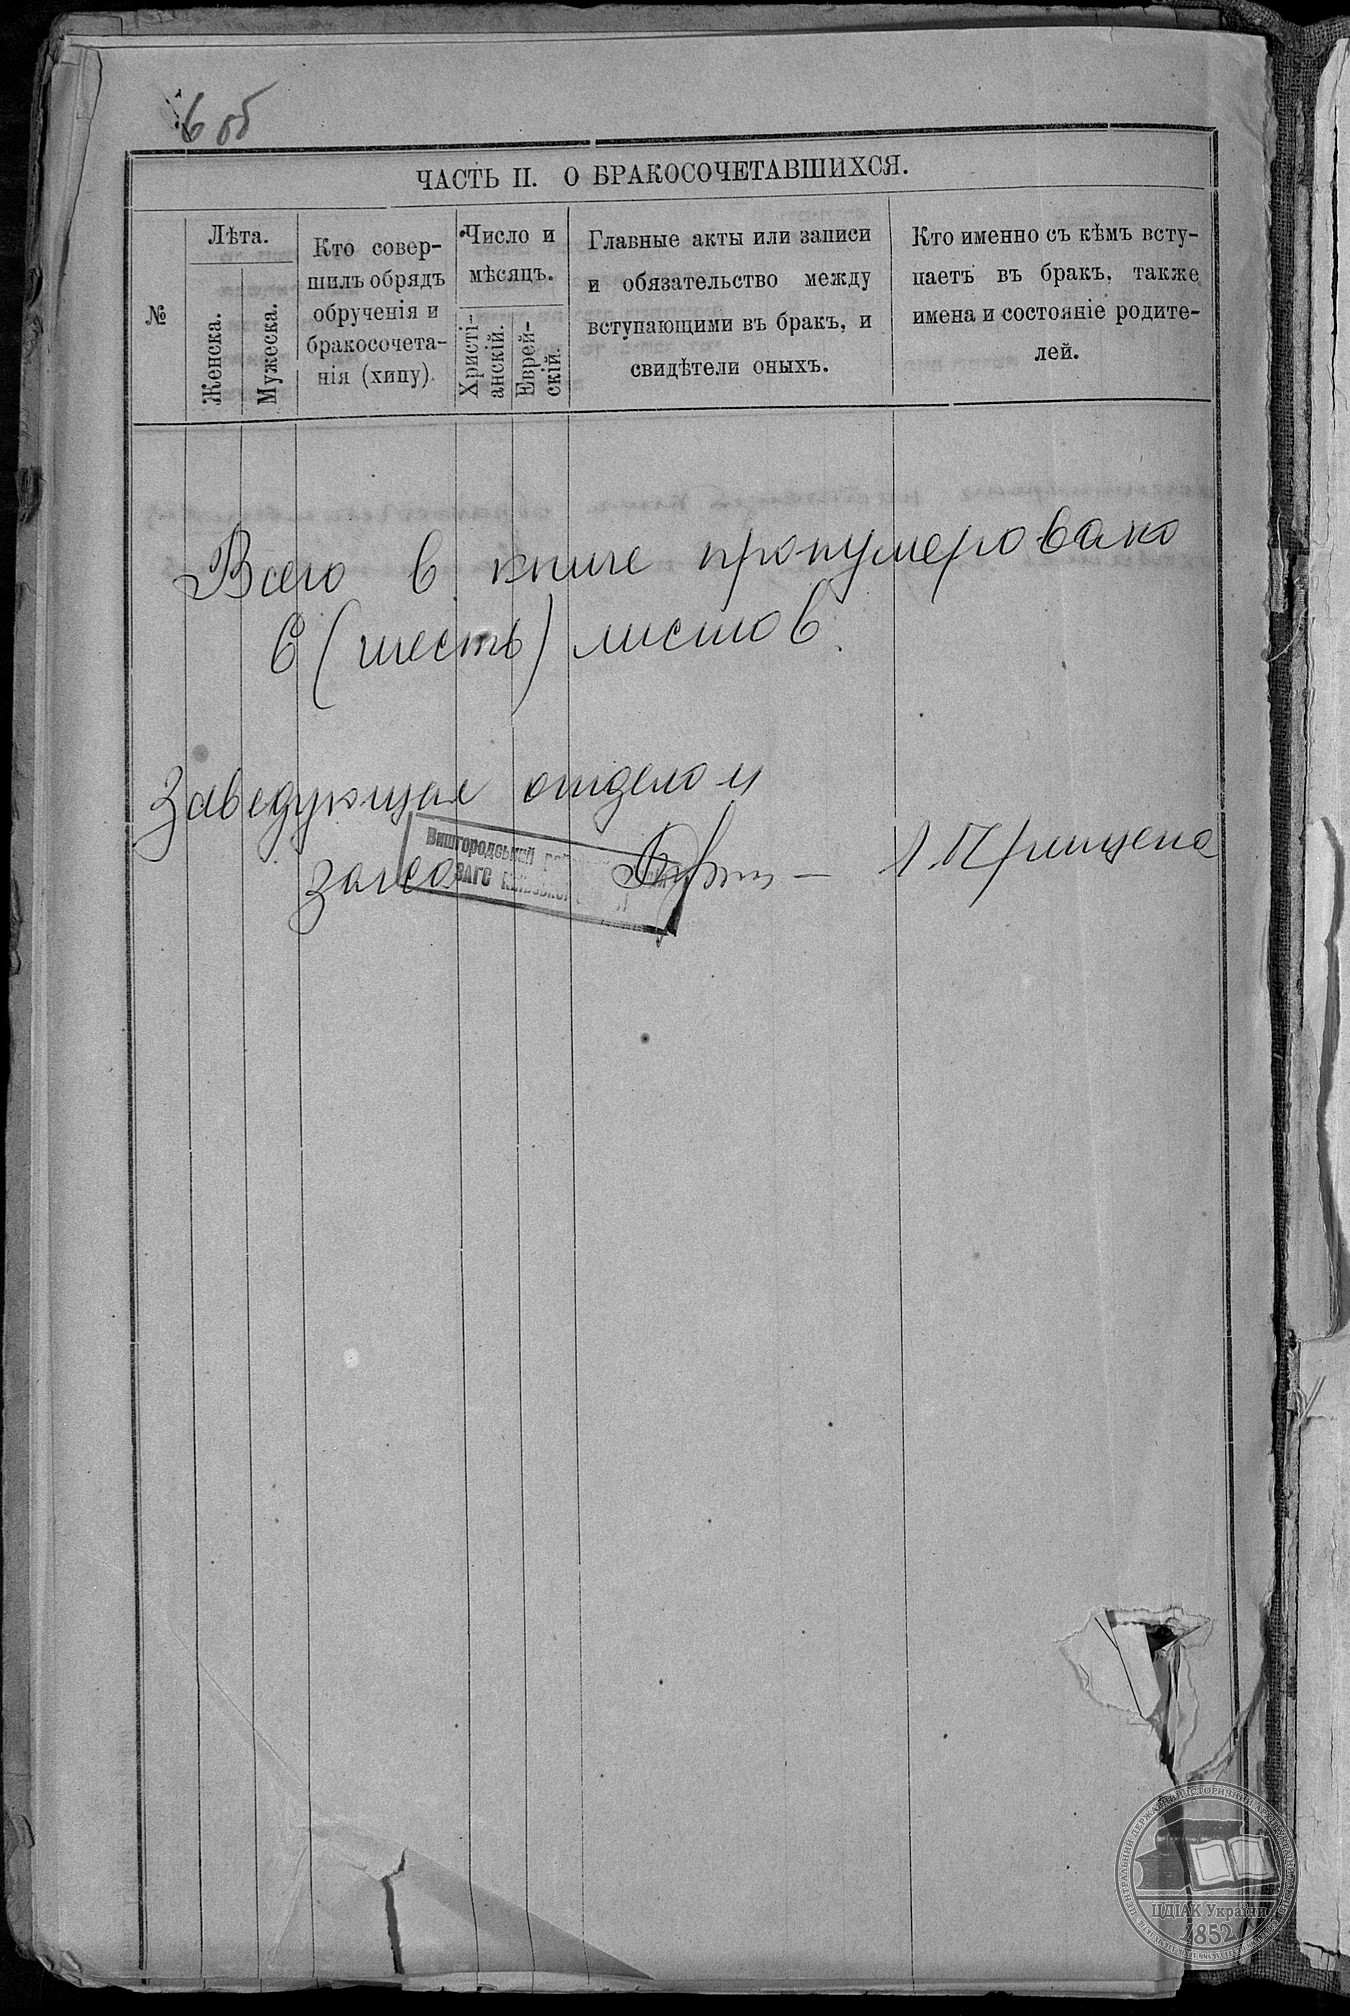 6 об
ЧАСТЬ II. О БРАКОСОЧЕТАВШИХСЯ.
№
Лѣта.
Женска.
Мужеска.
Кто совер-
шилъ обрядъ
обрученія и
бракосочета-
нія (хипу).
Число и
мѣсяцъ.
Христі-
анскій.
Еврей-
скій.
Главные акты или записи
и обязательство между
вступающими въ бракъ, и
свидѣтели оныхъ.
Кто именно съ кѣмъ всту-
паетъ въ бракъ, также
имена и состояніе родите-
лей.
Всего в книге пронумеровано
6 (шесть) листов.
Заведующая отделом
загса
Л. Прищепа
Вишгородський
ЗАГС
ЦДІАК України
1852